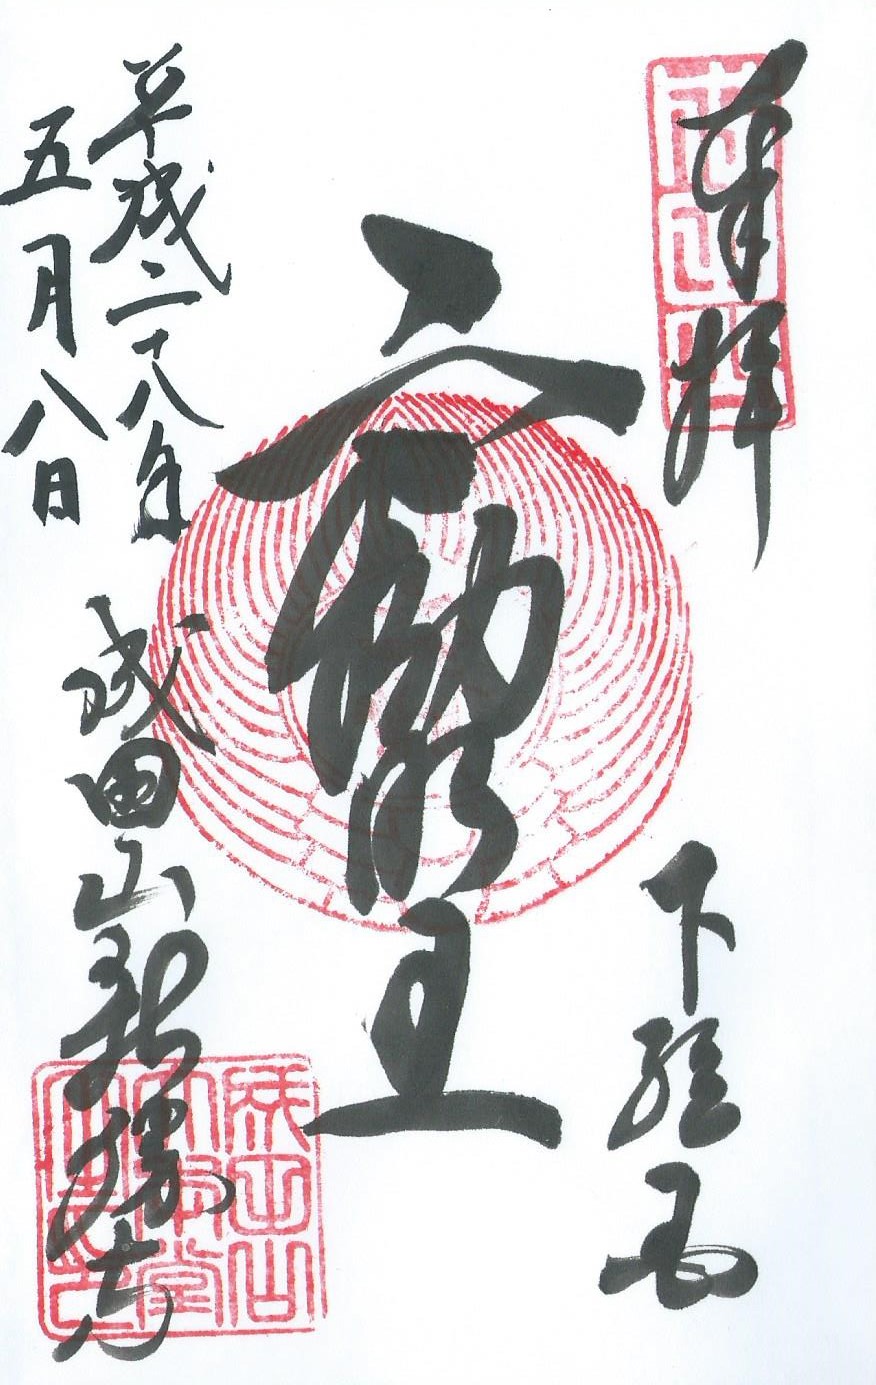 奉拝
成田山
下総國
不動明王
平成二十八年
五月八日
成田山新勝寺
成田山
大本堂